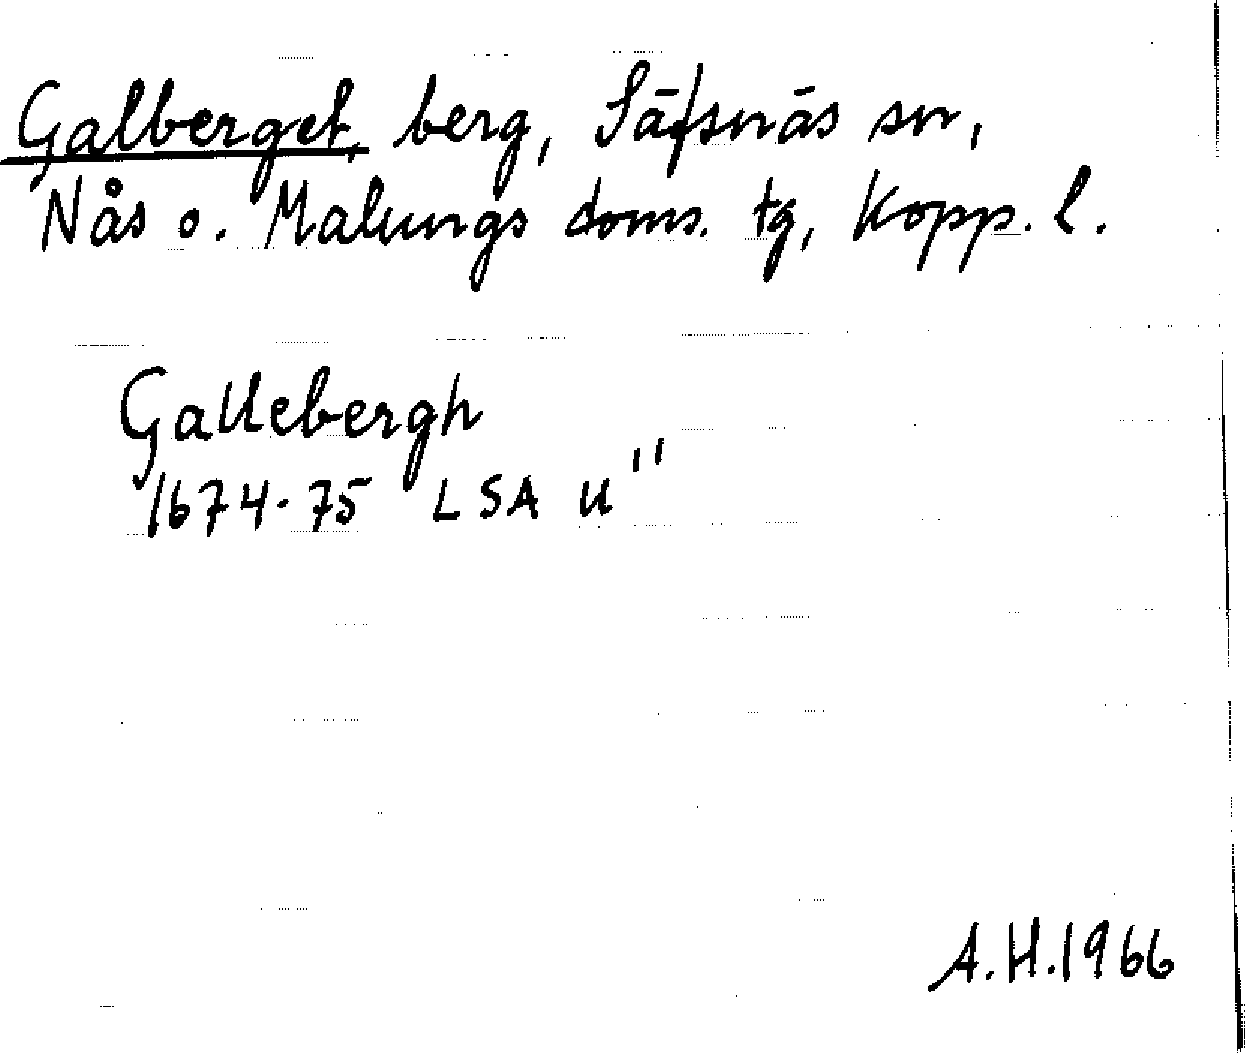 Galberget, berg, Säfsnäs sn,
Nås o. Malungs doms. tg, Kopp. l.
Gallebergh
1674-75 LSA U"
A.H.1966